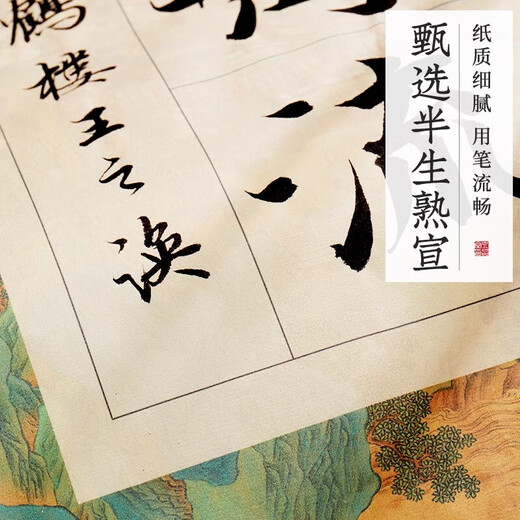 纸质细腻 用笔流畅
甄选半生熟宣
樓王之渙